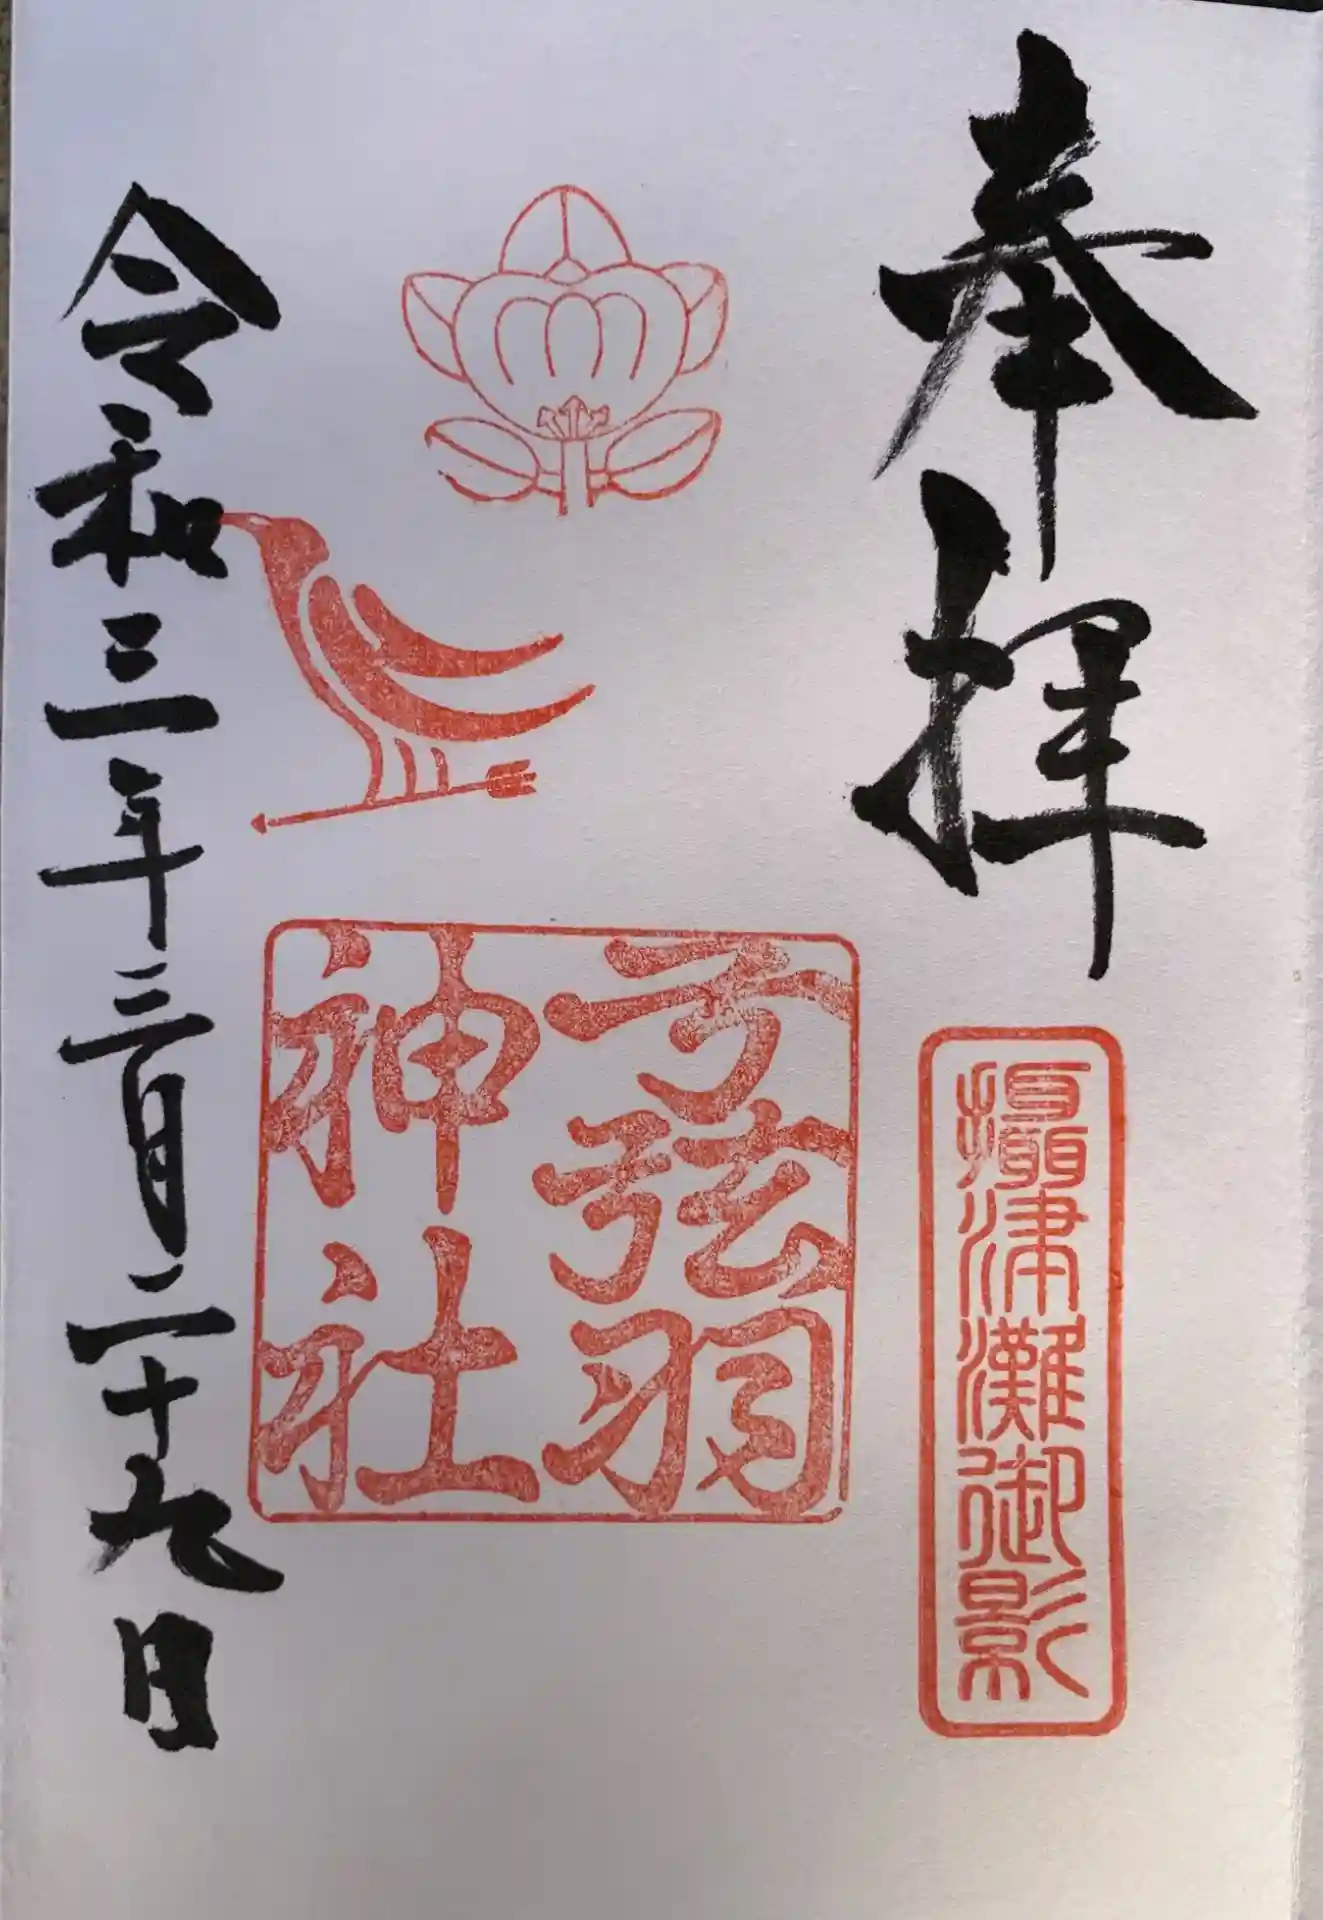 奉拝
攝津灘御影
弓弦羽
神社
令和三年三月二十九日